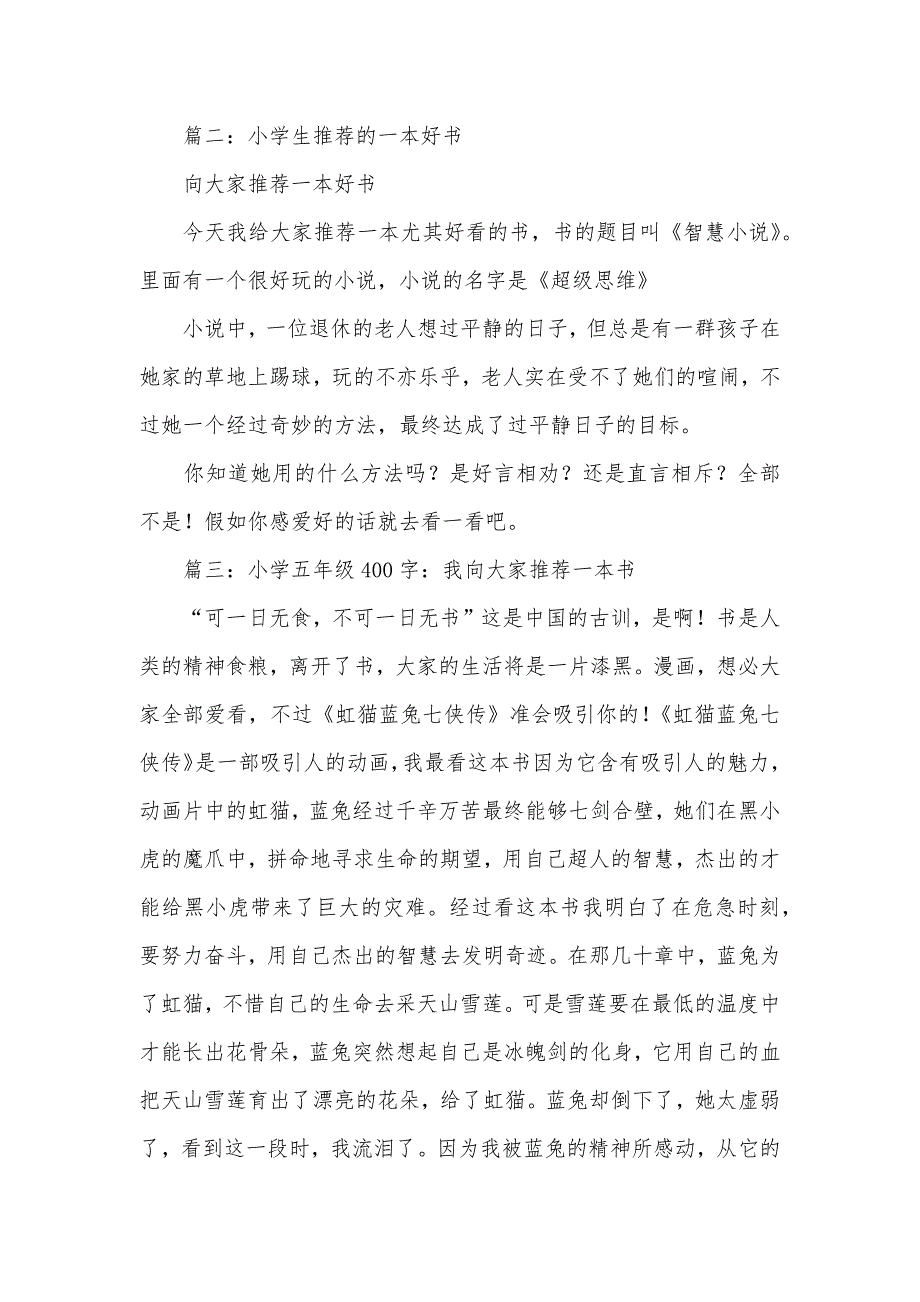 篇二：小学生推荐的一本好书
向大家推荐一本好书
今天我给大家推荐一本尤其好看的书，书的题目叫《智慧小说》。
里面有一个很好玩的小说，小说的名字是《超级思维》
小说中，一位退休的老人想过平静的日子，但总是有一群孩子在
她家的草地上踢球，玩的不亦乐乎，老人实在受不了她们的喧闹，不
过她一个经过奇妙的方法，最终达成了过平静日子的目标。
你知道她用的什么方法吗？是好言相劝？还是直言相斥？全部
不是！假如你感爱好的话就去看一看吧。
篇三：小学五年级 400 字：我向大家推荐一本书
“可一日无食，不可一日无书”这是中国的古训，是啊！书是人
类的精神食粮，离开了书，大家的生活将是一片漆黑。漫画，想必大
家全部爱看，不过《虹猫蓝兔七侠传》准会吸引你的！《虹猫蓝兔七
侠传》是一部吸引人的动画，我最看这本书因为它含有吸引人的魅力，
动画片中的虹猫，蓝兔经过千辛万苦最终能够七剑合壁，她们在黑小
虎的魔爪中，拼命地寻求生命的期望，用自己超人的智慧，杰出的才
能给黑小虎带来了巨大的灾难。经过看这本书我明白了在危急时刻，
要努力奋斗，用自己杰出的智慧去发明奇迹。在那几十章中，蓝兔为
了虹猫，不惜自己的生命去采天山雪莲。可是雪莲要在最低的温度中
才能长出花骨朵，蓝兔突然想起自己是冰魄剑的化身，它用自己的血
把天山雪莲育出了漂亮的花朵，给了虹猫。蓝兔却倒下了，她太虚弱
了，看到这一段时，我流泪了。因为我被蓝兔的精神所感动，从它的